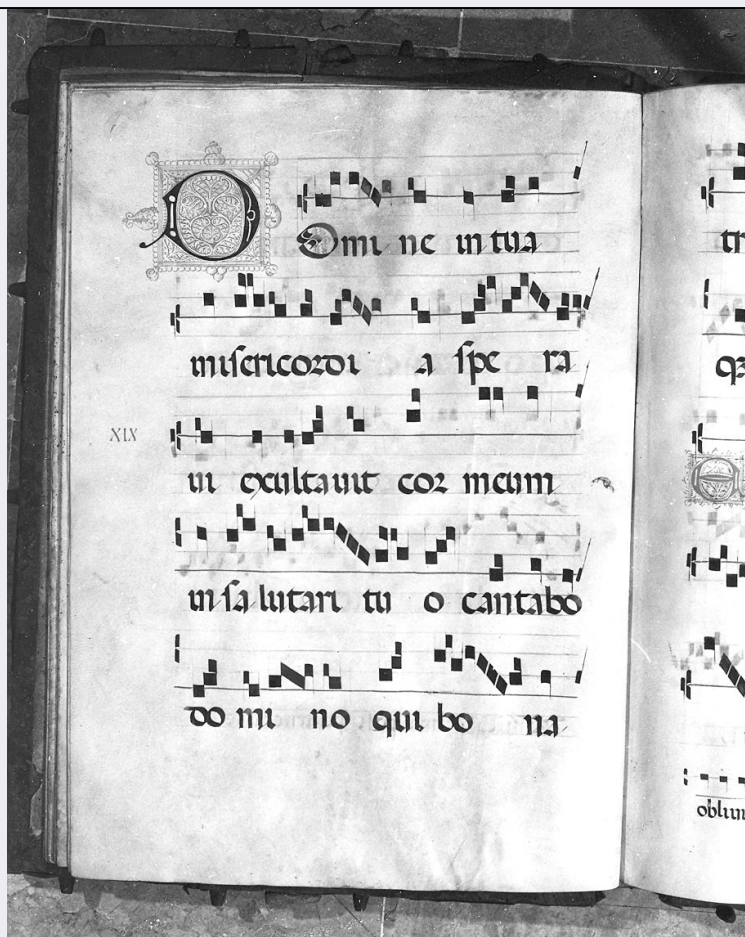 Domi ne in tua
misericordi a spe ra
XIX
ui exultauit cor meum
in sa lutari tu o cantabo
do mi no qui bo na
tr
oblun